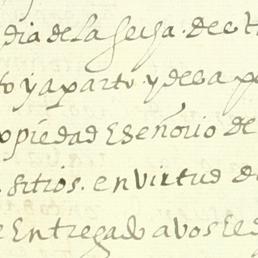 dia de la feha. de
to y aparto. y de la p
opiedad E señorio de
sitios. en virtud d
Entregado a vos El